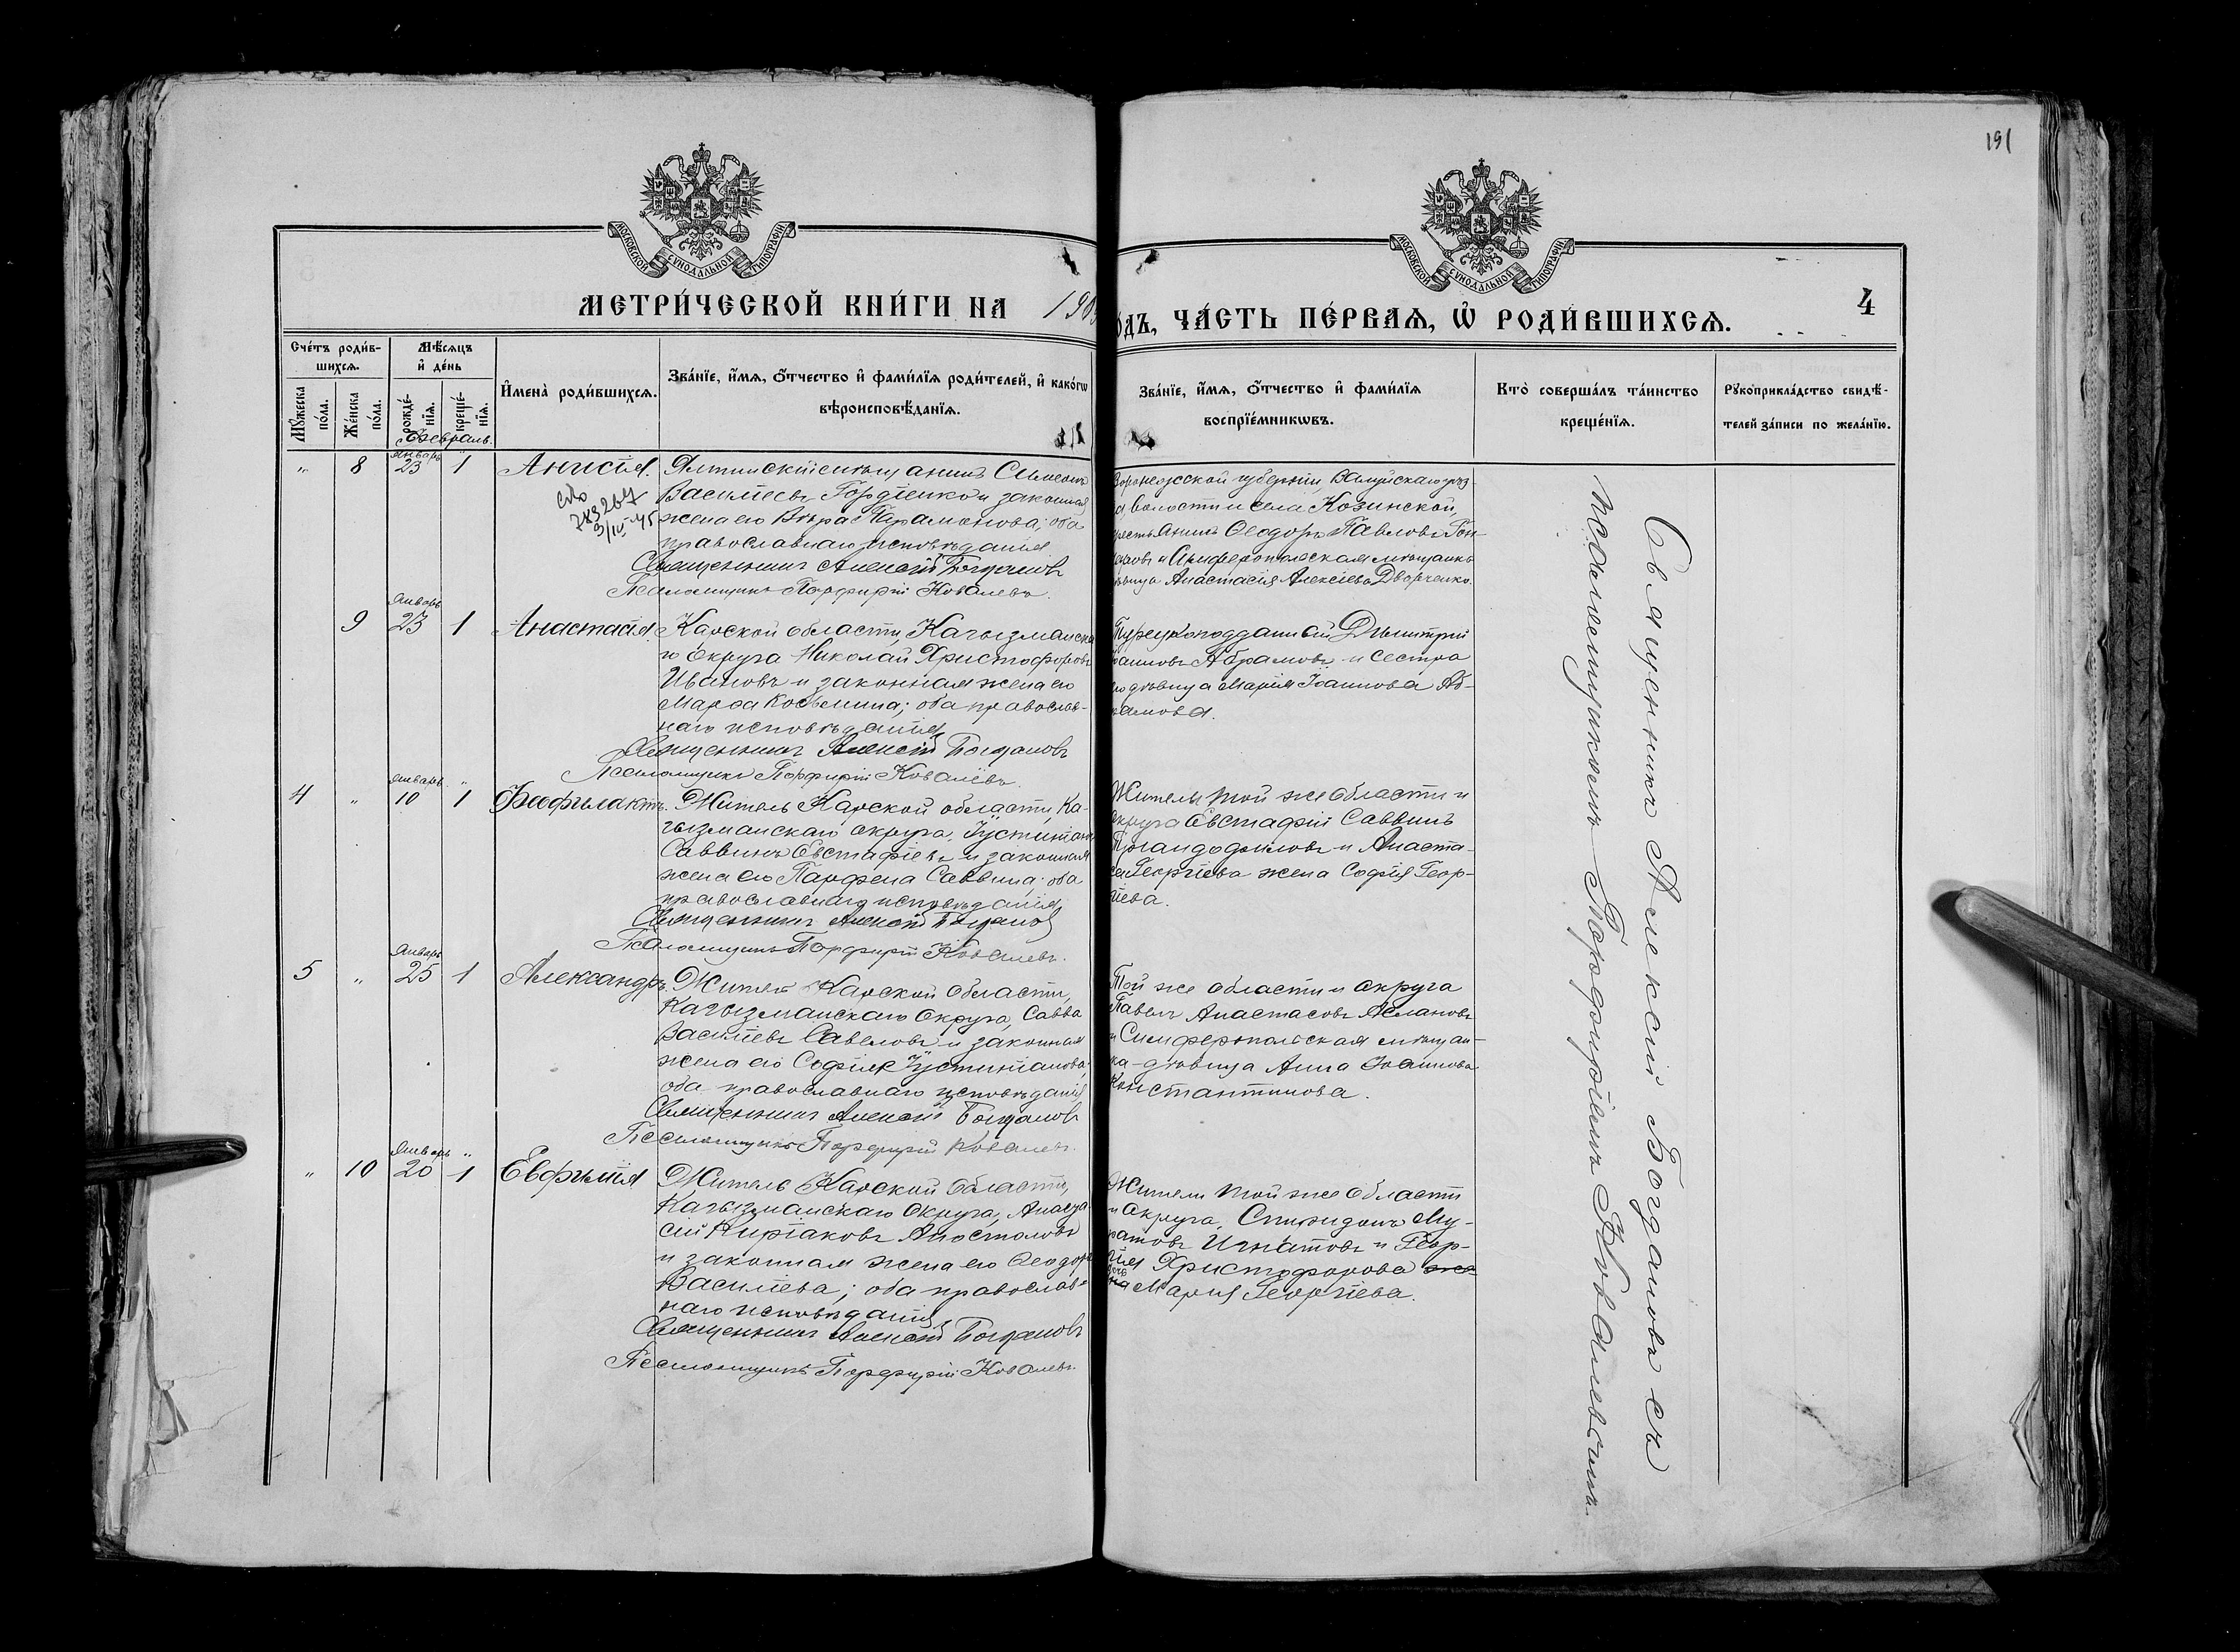 191
МОСКОВСКОЙ СѴНОДАЛЬНОЙ ТИПОГРАФІИ
МОСКОВСКОЙ СѴНОДАЛЬНОЙ ТИПОГРАФІИ
МЕТРИ́ЧЕСКОЙ КНИ́ГИ НА 190
ОДЪ, ЧА́СТЬ ПЕ́РВАѦ, Ѡ҆ РОДИ́ВШИХСѦ.
4
Сче́тъ роди́в-
шихсѧ.
Мѣ́сѧцъ
и҆ де́нь
Мꙋ́жеска
по́ла.
Же́нска
по́ла.
рожде́-
нїѧ.
креще́-
нїѧ.
И҆мена̀ роди́вшихсѧ.
Зва́нїе, и҆́мѧ, ѻ҆́тчество и҆ фами́лїѧ роди́телей, и҆ како́гѡ
вѣроисповѣ́данїѧ.
Зва́нїе, и҆́мѧ, ѻ҆́тчество и҆ фами́лїѧ
воспрїе́мникѡвъ.
Кто̀ соверша́лъ та́инство
креще́нїѧ.
Рꙋкоприкла́дство свидѣ́-
телей за́писи по жела́нїю.
Февраль.
Январь
" 8 23 1 Анисія.
Ялтинскій мѣщанинъ Сѵмеонъ
Васильевъ Гордіенко и законная
жена его Вѣра Парамонова; оба
православнаго исповѣданія
Священникъ Алексій Богдановъ
Псаломщикъ Порфирій Ковалевъ.
Воронежской губерніи, Валуйскаго уѣз-
волости и села Козинской,
крестьянинъ Ѳеодоръ Павловъ Гон-
и Симферопольская мѣщанка
дѣвица Анастасія Алексіева Дворченко.
Январь
9 23 1 Анастасія.
Карской области, Кагызманска-
го округа Николай Христофоровъ
Ивановъ и законная жена его
Марѳа Косьмина; оба православ-
наго исповѣданія
Священникъ Алексій Богдановъ
Псаломщикъ Порфирій Ковалевъ.
Турецкоподданный Димитрій
Іоанновъ Абрамовъ и сестра
его дѣвица Марія Іоаннова Аб-
рамова.
Январь "
4 " 10 1 Феофилактъ.
Житель Карской области, Ка-
гызманскаго округа, Іустиніанъ
Саввинъ Евстафіевъ и законная
жена его Парѳена Саввина; оба
православнаго исповѣданія
Священникъ Алексій Богдановъ
Псаломщикъ Порфирій Ковалевъ.
Жители той же области и
округа Евстафій Саввинъ
и Анаста-
Георгіева жена Софія Геор-
гіева.
Январь
5 " 25 1 Александръ.
Житель Карской области,
Кагызманскаго округа, Савва
Васильевъ Савеловъ и законная
жена его Софія Іустиніанова;
оба православнаго исповѣданія
Священникъ Алексій Богдановъ
Псаломщикъ Порфирій Ковалевъ.
Той же области и округа
Павелъ Анастасовъ Аслановъ
и Симферопольская мѣщан-
ка-дѣвица Анна Іоаннова
Константинова.
Январь "
" 10 20 1 Евфимія
Житель Карской области,
Кагызманскаго округа,
Киріаковъ Апостоловъ
и законная жена его Ѳеодора
Васильева; оба православ-
наго исповѣданія
Священникъ Алексій Богдановъ
Псаломщикъ Порфирій Ковалевъ.
Жители той же области
и округа, Спиридонъ Му-
ратовъ Игнатовъ и Геор-
гія Христофорова
Марія Георгіева.
Священникъ Алексій Богдановъ съ
псаломщикомъ Порфиріемъ Ковалевымъ.